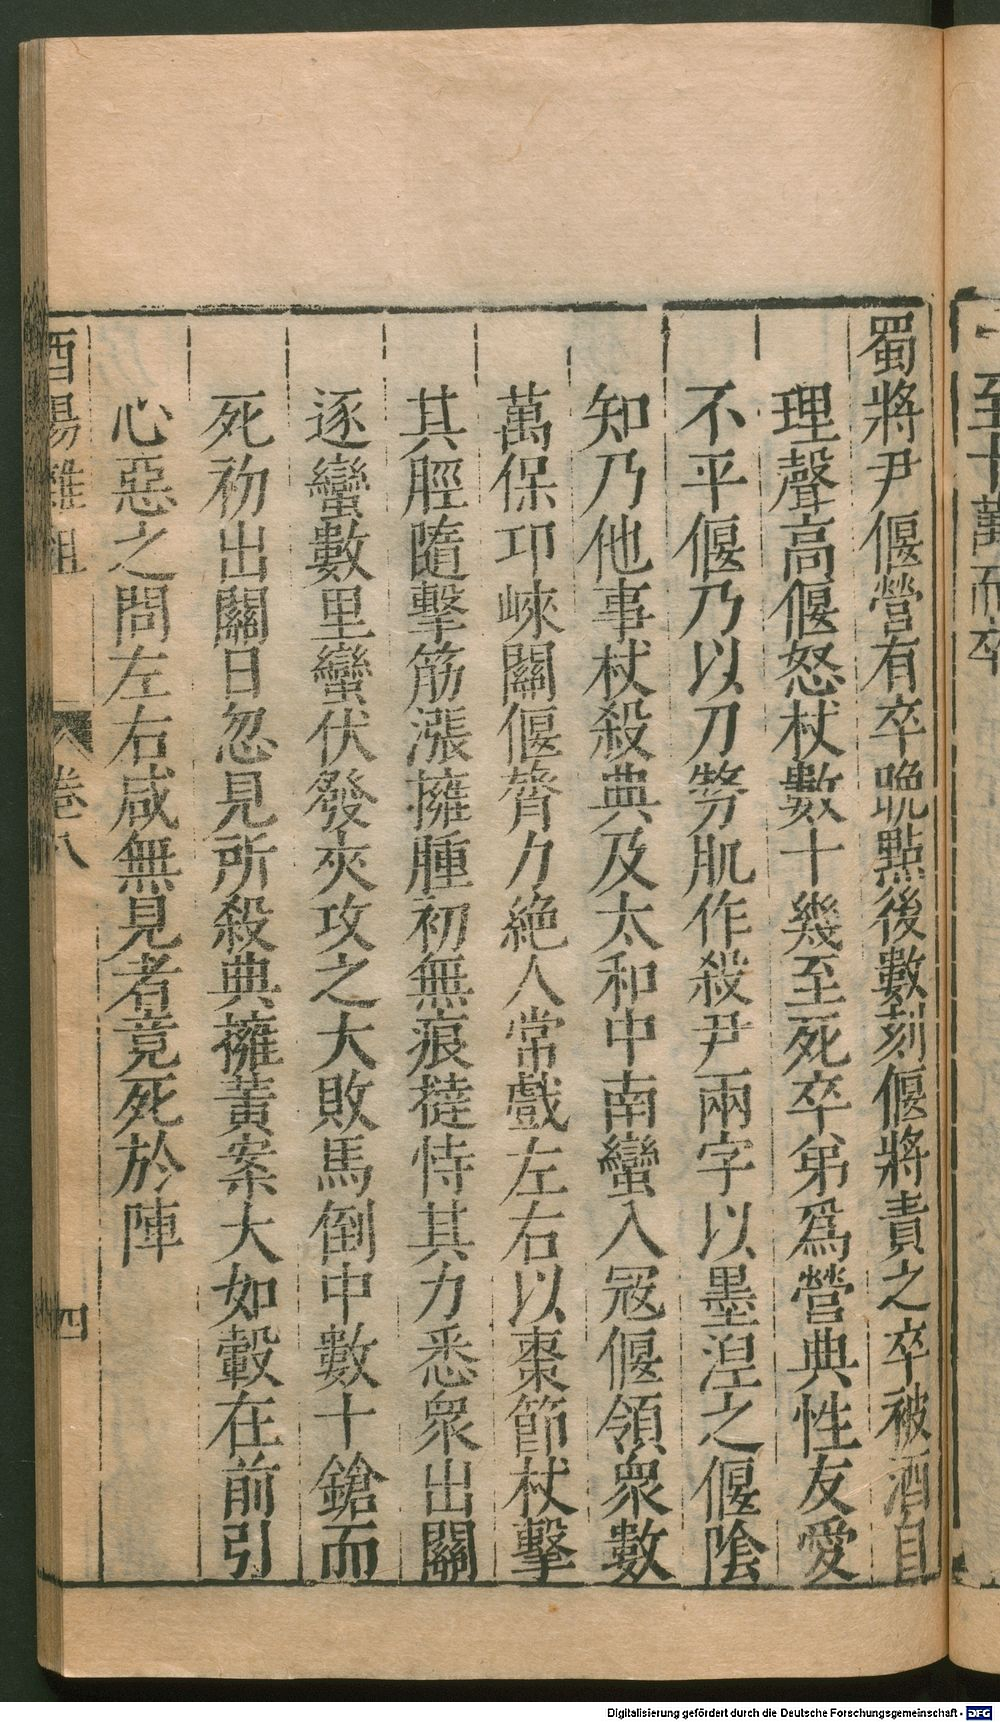 至十萬而卒
蜀將尹偃營有卒晩點後數刻偃將責之卒被酒自
理聲高偃怒杖數十幾至死卒弟爲營典性友愛
不平偃乃以刀剺肌作殺尹兩字以墨涅之偃陰
知乃他事杖殺典及太和中南蠻入冦偃領衆數
萬保邛崍關偃膂力絶人常戲左右以棗節杖擊
其脛隨擊筋漲擁腫初無痕撻恃其力悉衆出關
逐蠻數里蠻伏發夾攻之大敗馬倒中數十鎗而
死初出關日忽見所殺典擁黃案大如轂在前引
心惡之問左右咸無見者竟死於陣
酉陽雜俎 卷八 四
Digitalisierung gefördert durch die Deutsche Forschungsgemeinschaft - DFG